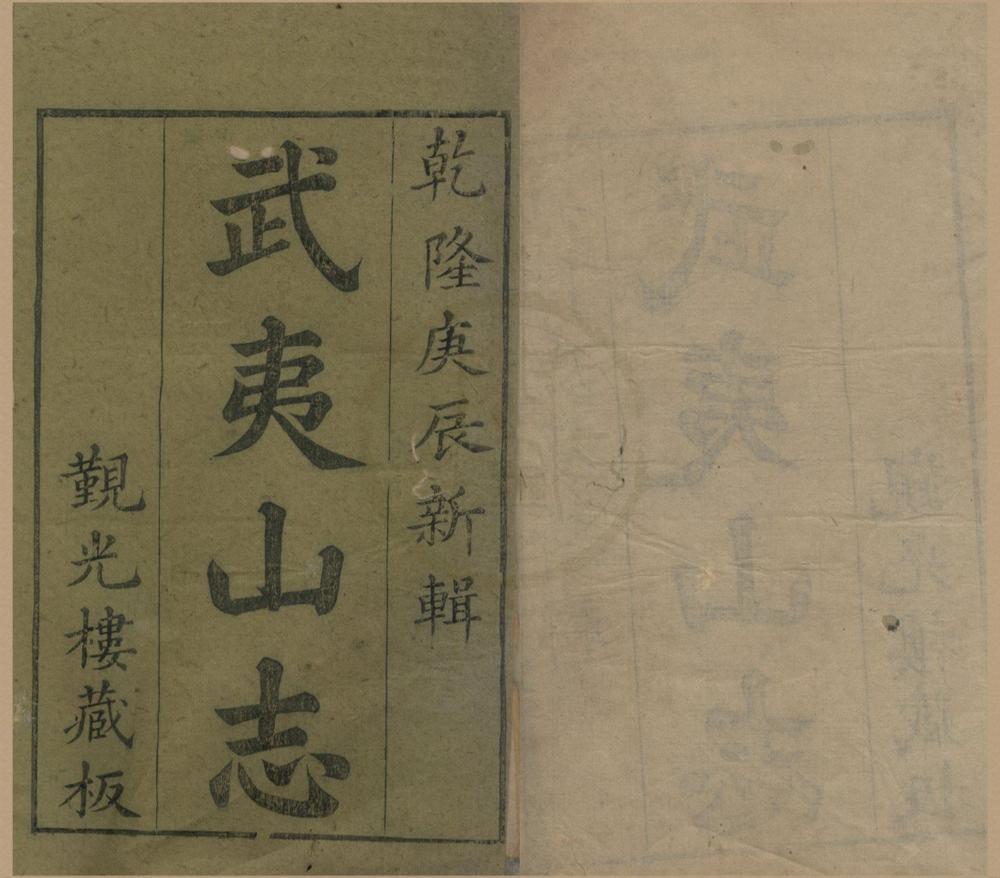 乾隆庚辰新輯
武夷山志
觐光樓藏板